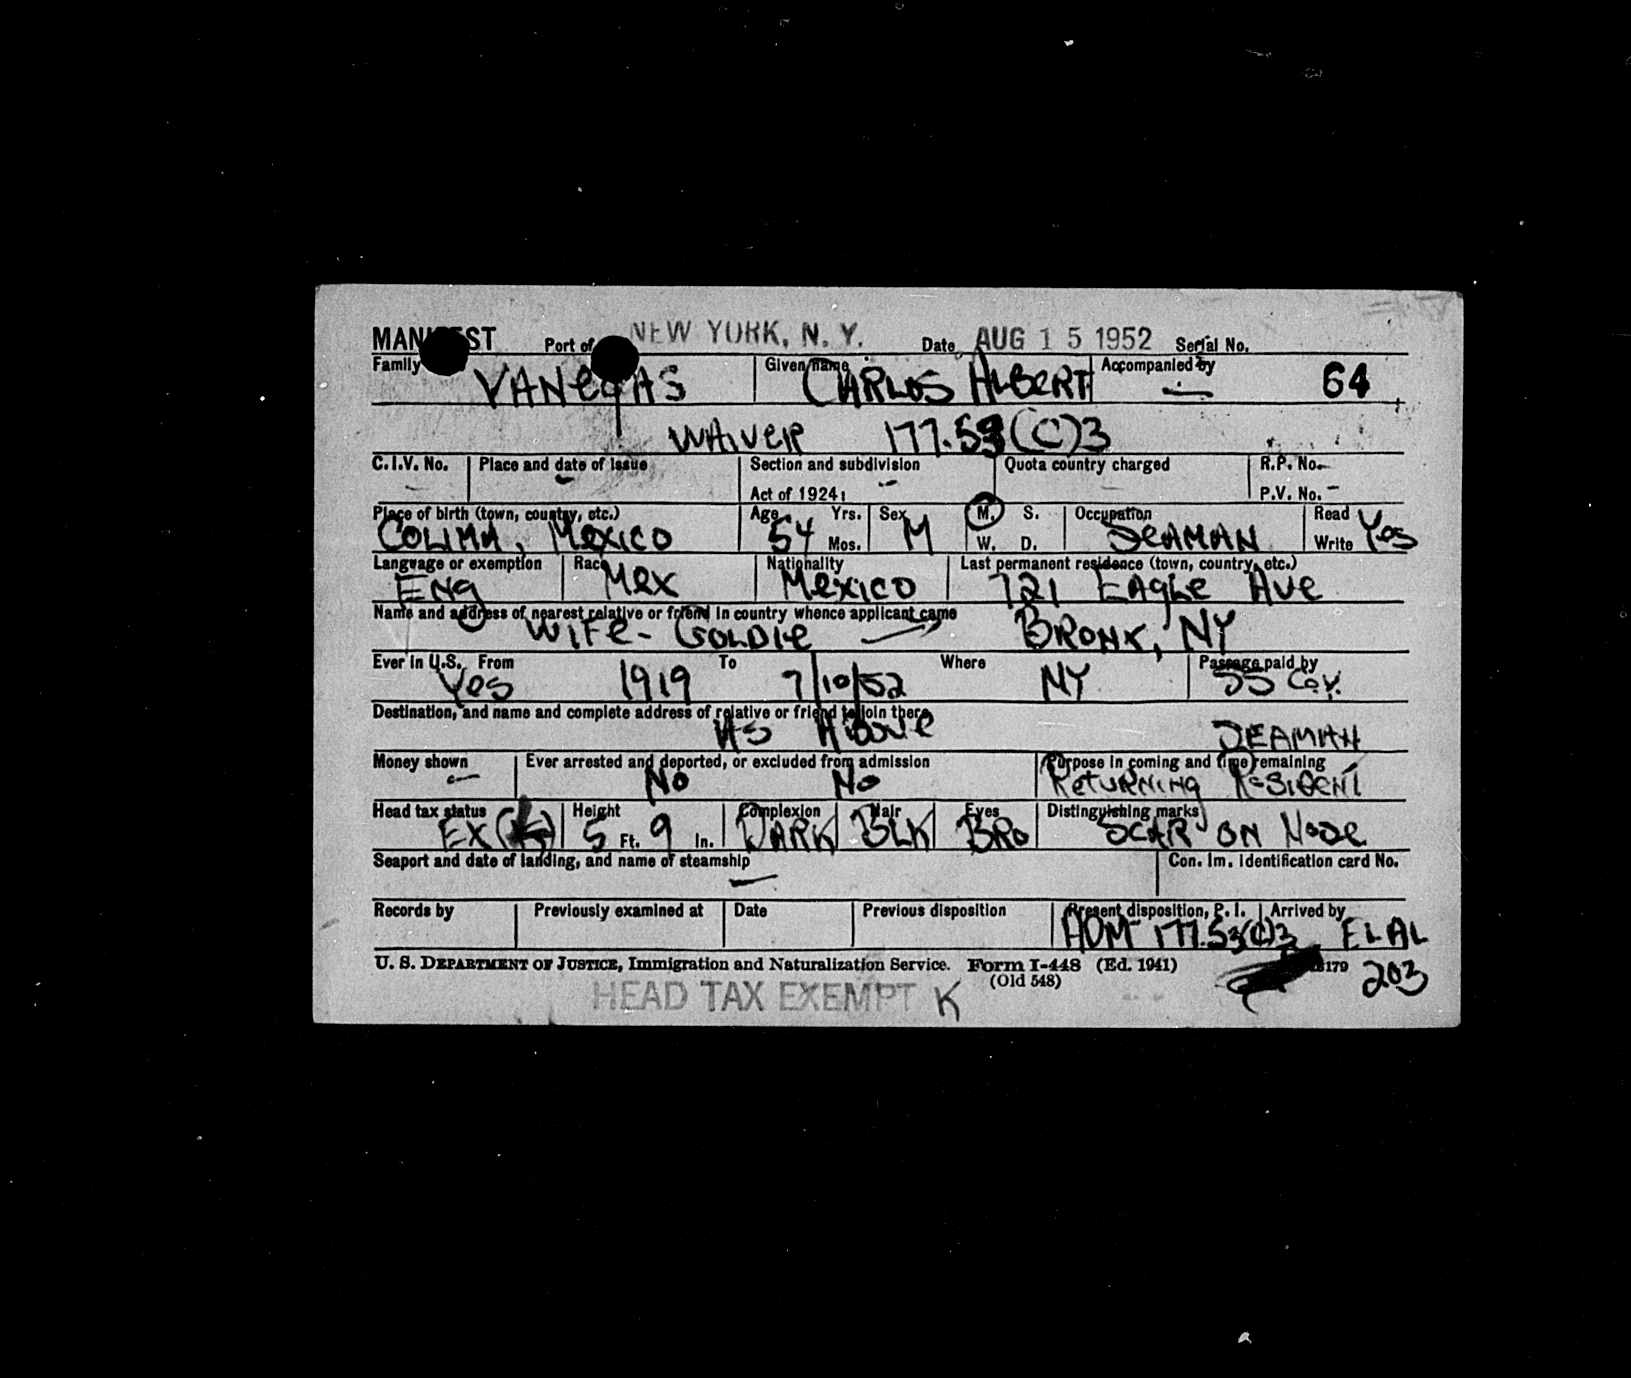 MANIFEST Port of NEW YORK, N. Y. Date AUG 15 1952 Serial No.
Family VANEGAS Given name CARLOS ALBERT Accompanied by — 64
WAIVER 177.53(C)3
C.I.V. No. — Place and date of issue — Section and subdivision — Quota country charged — R.P. No. —
Act of 1924: P.V. No. —
Place of birth (town, country, etc.) Age Yrs. Sex M. S. Occupation Read
COLIMA, MEXICO 54 Mos. M W. D. SEAMAN Write Yes
Language or exemption Race Nationality Last permanent residence (town, country, etc.)
ENg Mex MexICO 721 EAgLe Ave
Name and address of nearest relative or friend in country whence applicant came
WIFe - GOLDIe BRONX, NY
Ever in U.S. From To Where Passage paid by
Yes 1919 7/10/52 NY SS Coy.
Destination, and name and complete address of relative or friend to join there
AS ABOVe SEAMAN
Money shown Ever arrested and deported, or excluded from admission Purpose in coming and time remaining
— No No ReTURNINg ReSIDENT
Head tax status Height Complexion Hair Eyes Distinguishing marks
EX 5 Ft. 9 In. DARK BLK BRO SCAR ON NOSe
Seaport and date of landing, and name of steamship Con. Im. Identification card No.
—
Records by Previously examined at Date Previous disposition Present disposition, P. I. Arrived by
ADM 177.53(C)3 EL AL
U. S. DEPARTMENT OF JUSTICE, Immigration and Naturalization Service. Form I-448 (Ed. 1941) 203
(Old 548)
HEAD TAX EXEMPT K